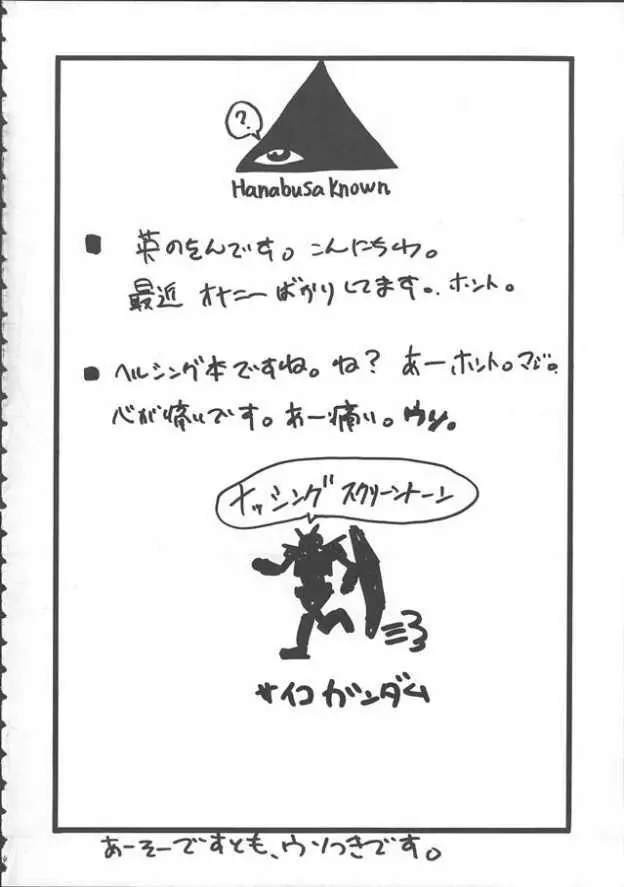 ?
Hanabusa Known
■ 英のをんです。こんにちわ。
最近 オナニーばかりしてます。ホント。
■ ヘルシング本ですね。ね？ あーホント。マジ。
心が痛いです。あー痛い。ウソ。
ナッシング スクリーントーン
サイコガンダム
あーそーですとも、ウソつきです。